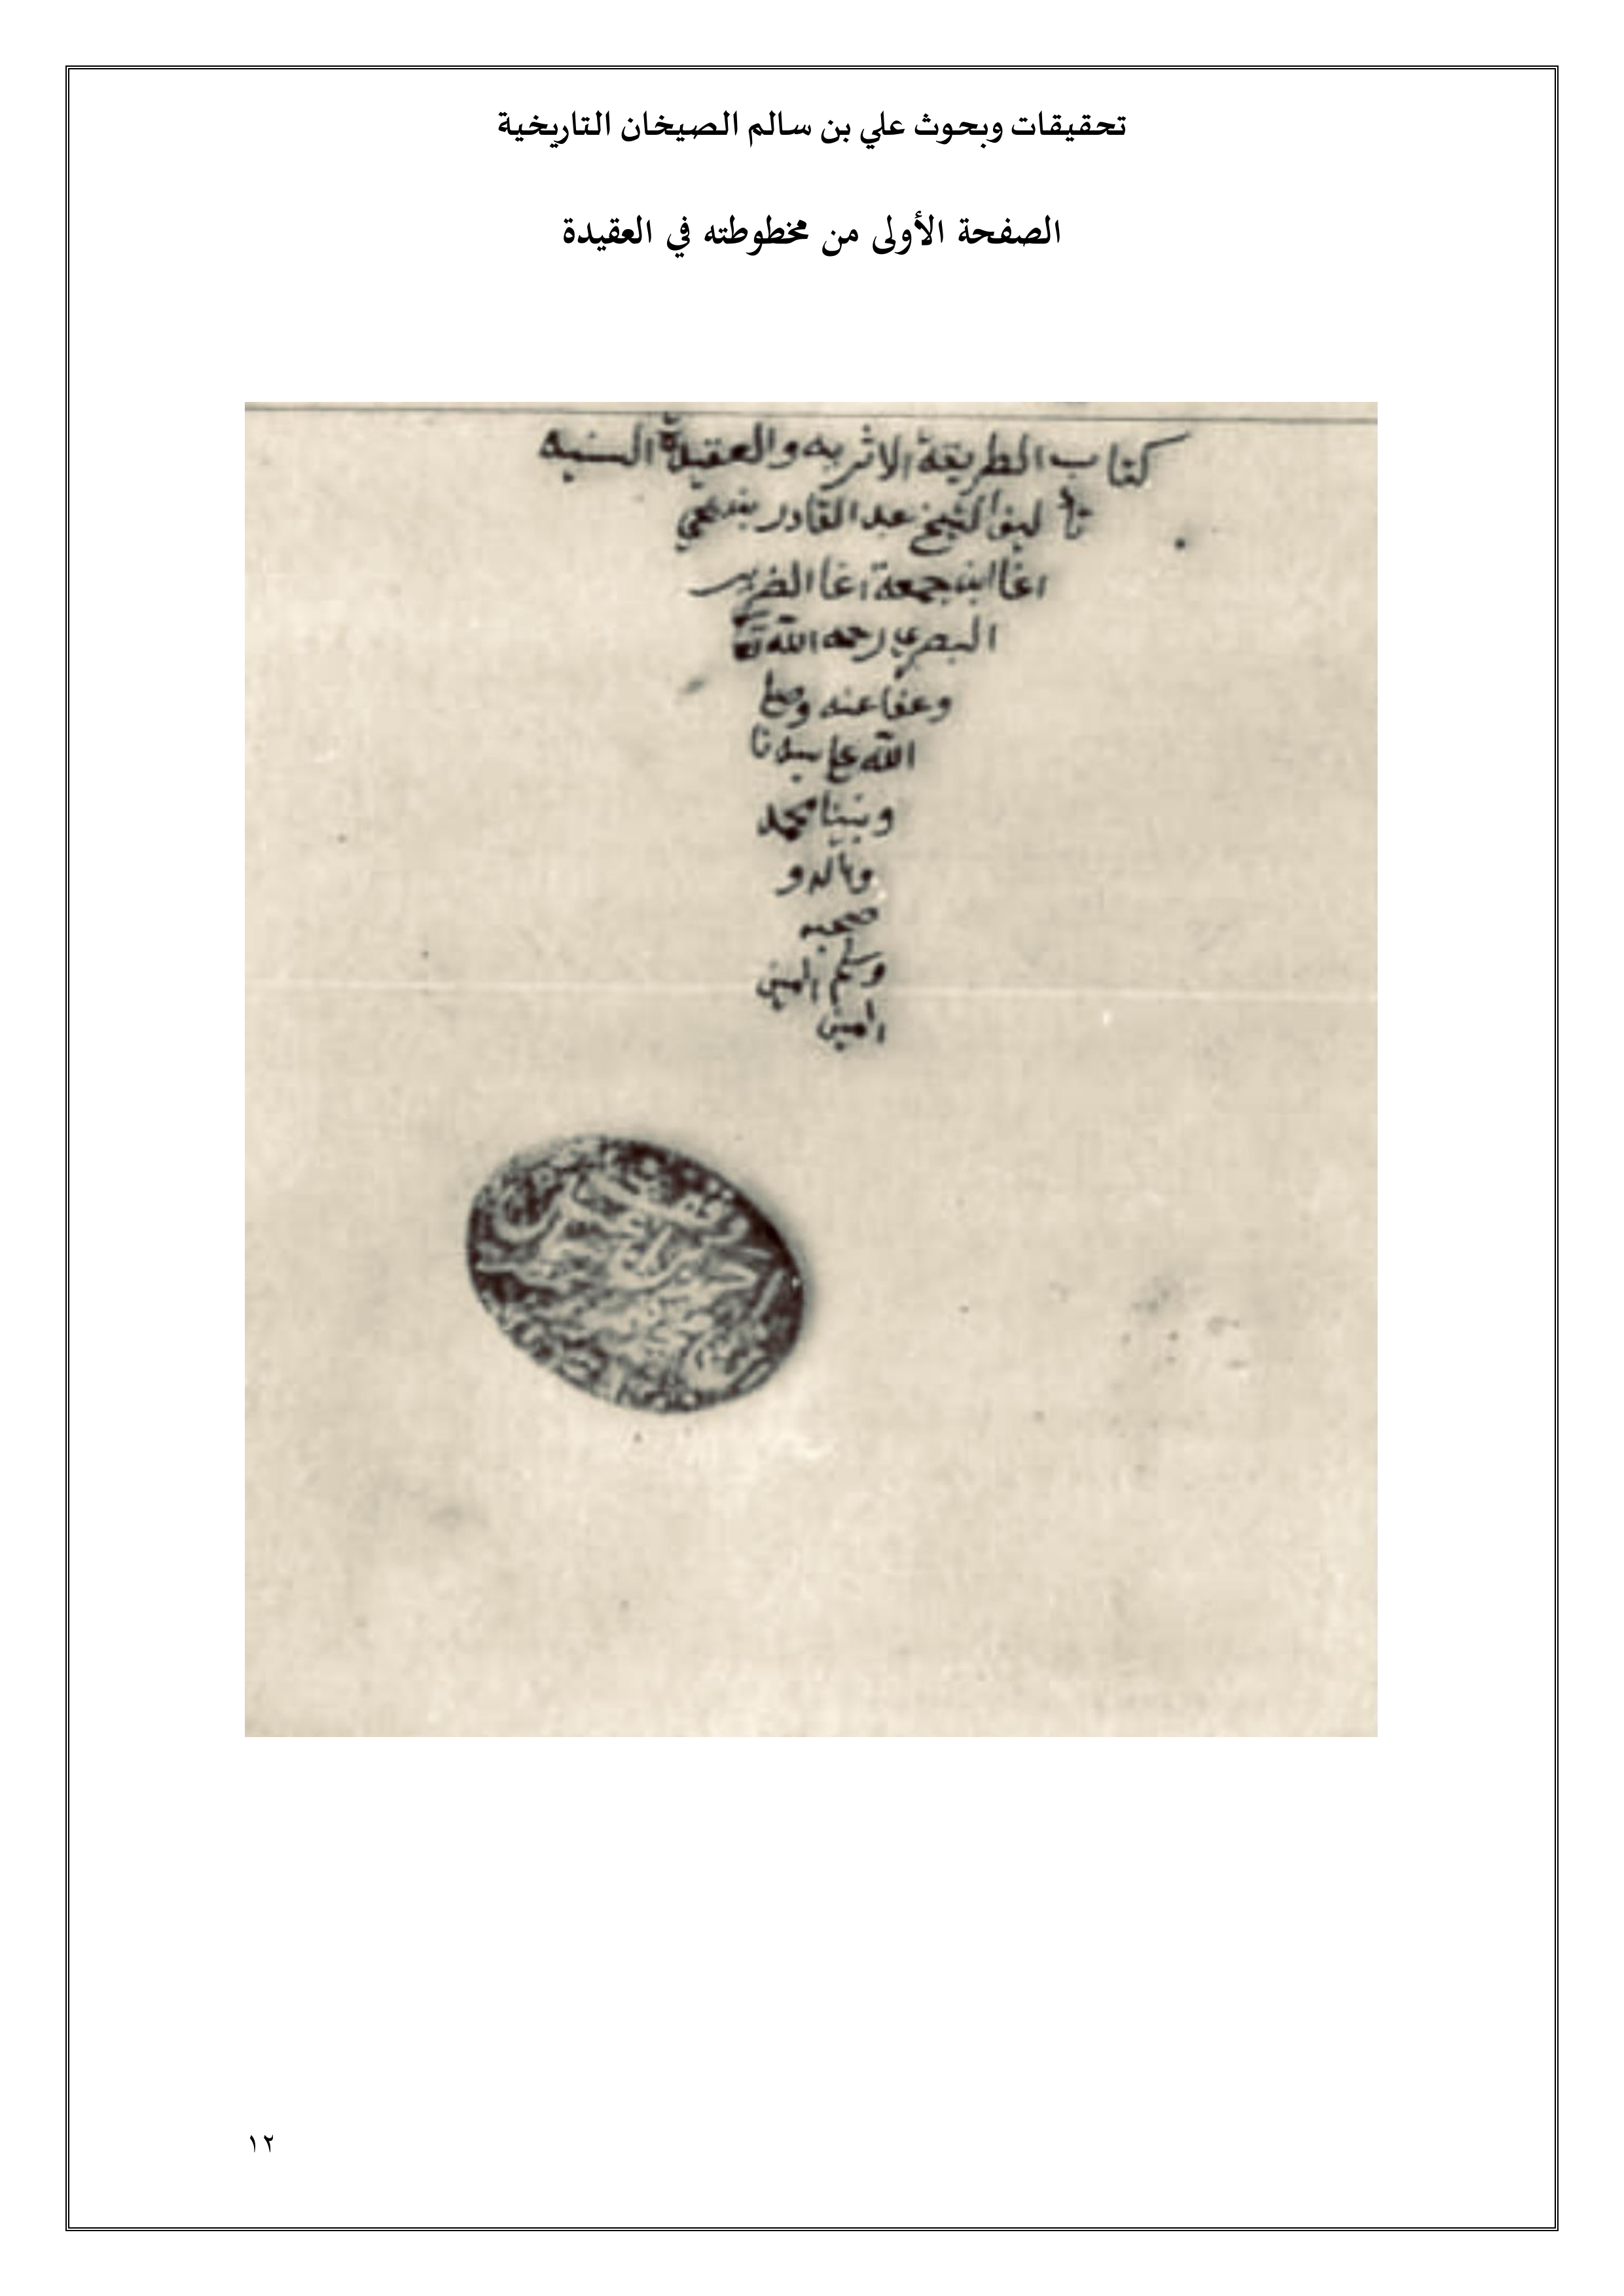 تحقيقات وبحوث علي بن سالم الصيخان التاريخية
الصفحة الأولى من مخطوطته في العقيدة
كتاب الطريقة الاثريه والعقيدة السنيه
تأليف الشيخ عبد القادر بن
اغا ابن جمعة اغا الضرير
البصري رحمه الله تعا
وعفا عنه وصلى
الله على سيدنا
ونبينا محمد
وءاله و
صحبه
وسلم امين
امين
١٢